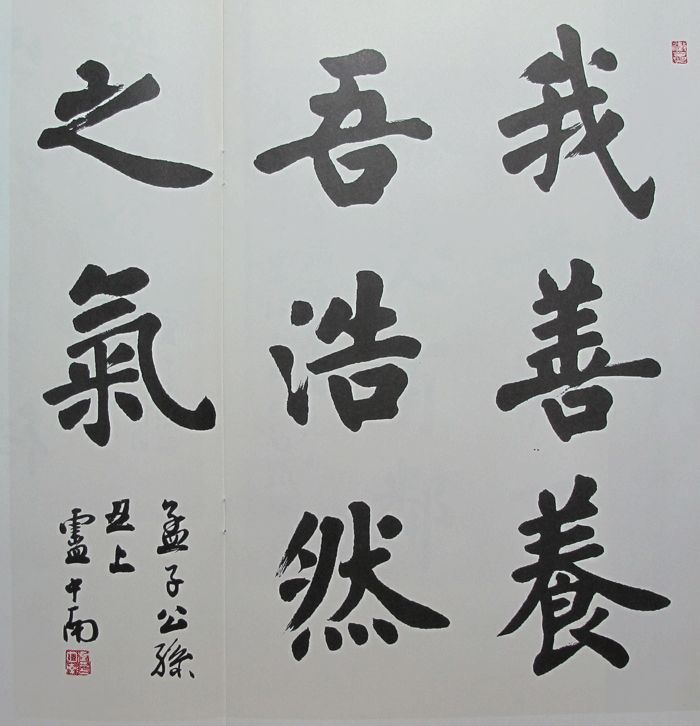 我善養
吾浩然
之氣
孟子公孫
丑上
盧中南